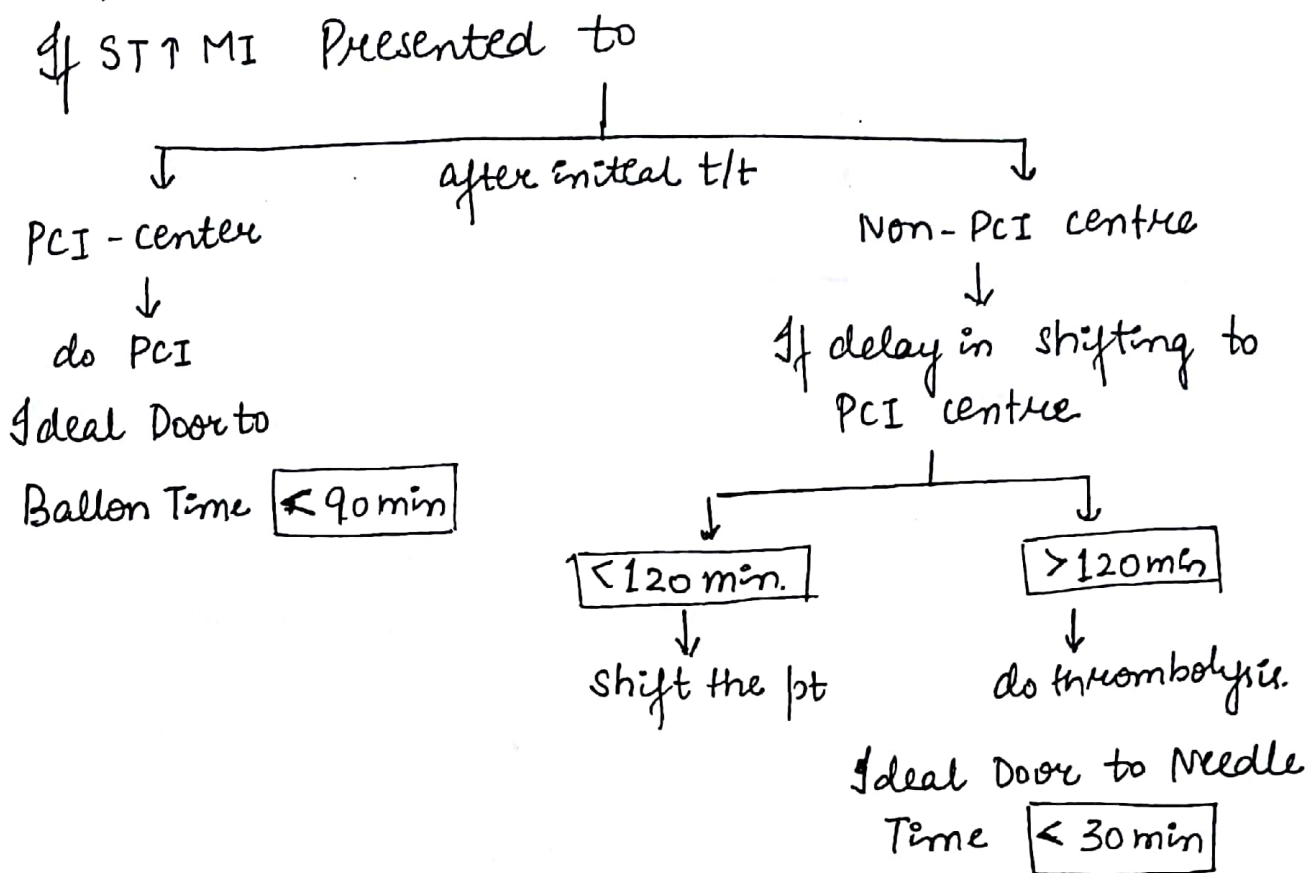 If ST↑ MI Presented to
after initial t/t
PCI - center
do PCI
Ideal Door to
Ballon Time < 90 min
Non - PCI centre
If delay in shifting to
PCI centre
< 120 min.
shift the pt
> 120 min
do thrombolysis.
Ideal Door to Needle
Time < 30 min